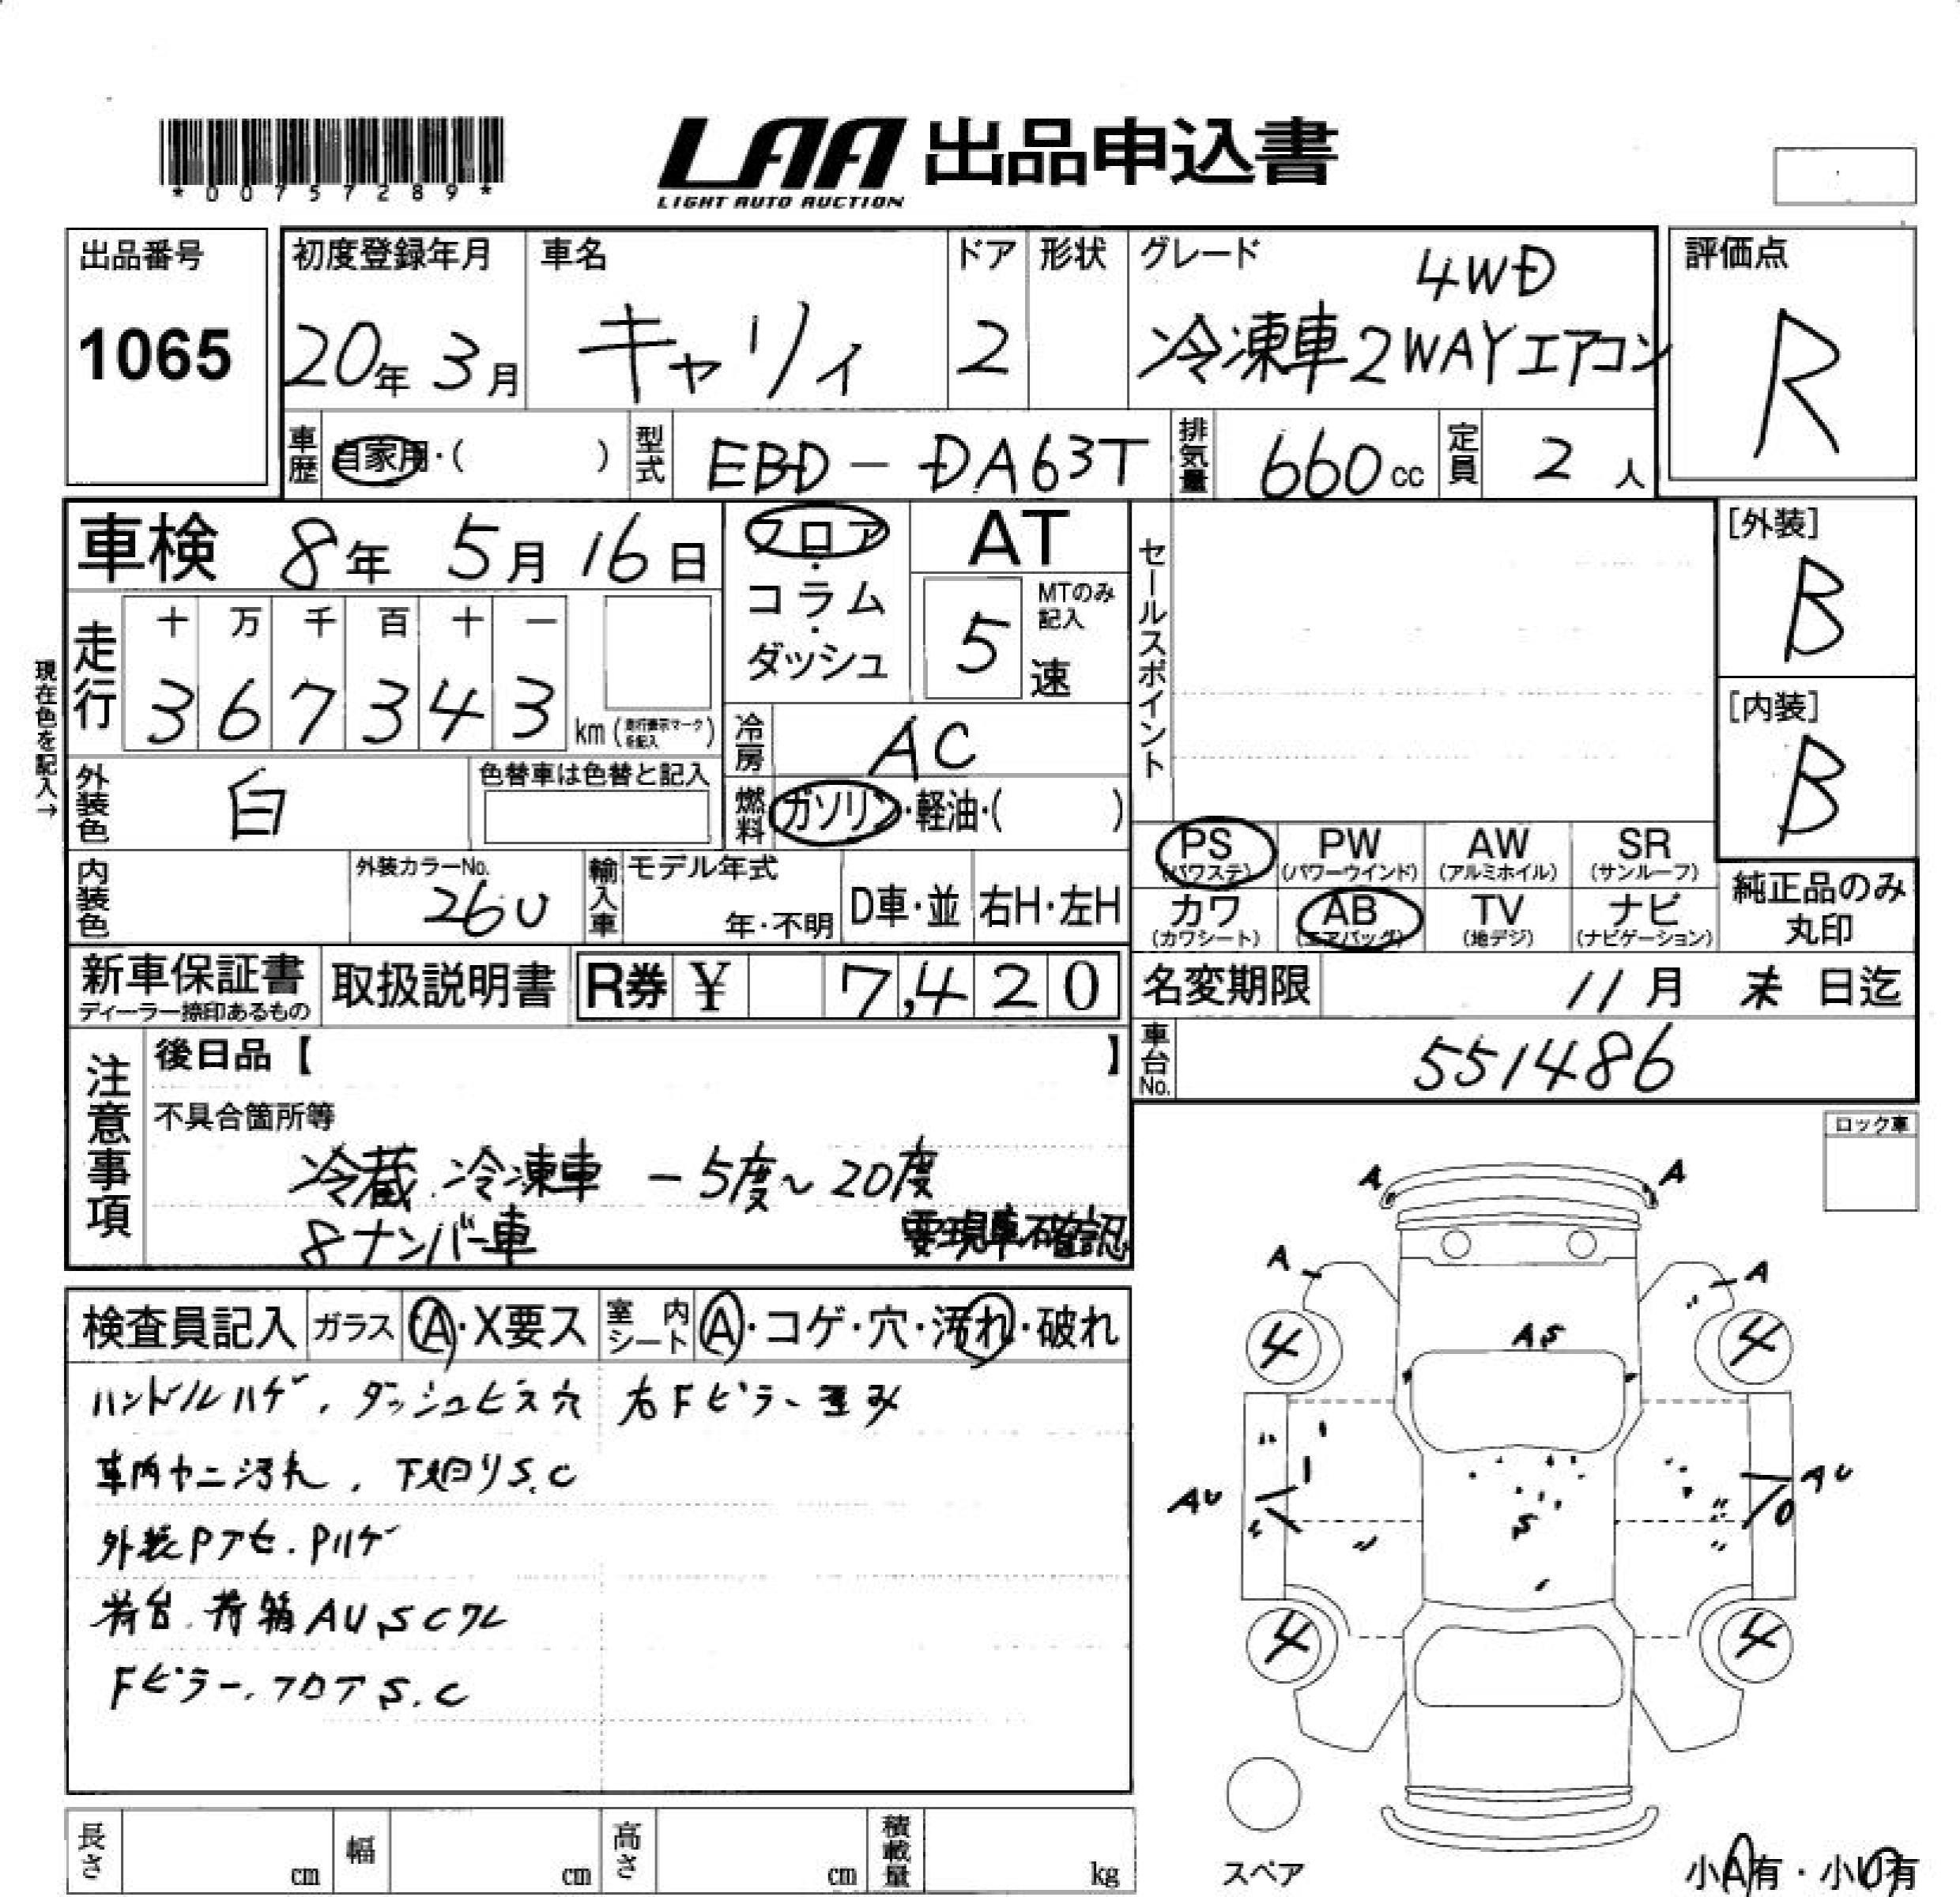 *00757289*
LAA 出品申込書
LIGHT AUTO AUCTION
出品番号
1065
初度登録年月
20年 3月
車名
キャリィ
ドア
2
形状
グレード
4WD
冷凍車2WAYエアコン
評価点
R
車歴 自家用・( )
型式 EBD-DA63T
排気量 660cc
定員 2人
車検 8年 5月 16日
フロア・コラム・ダッシュ
AT
5速
MTのみ記入
セールスポイント
[外装]
B
[内装]
B
現在色を記入→
走行
十 万 千 百 十 一
3 6 7 3 4 3 km
冷房 AC
外装色 白
色替車は色替と記入
燃料 ガソリン・軽油・( )
内装色
外装カラーNo.
26U
輸入車
モデル年式
年・不明
D車・並
右H・左H
PS (パワステ)
PW (パワーウインド)
AW (アルミホイル)
SR (サンルーフ)
カワ (カワシート)
AB (エアバッグ)
TV (地デジ)
ナビ (ナビゲーション)
純正品のみ
丸印
新車保証書
ディーラー捺印あるもの
取扱説明書
R券 ¥ 7,420
名変期限 11月 末 日迄
車台No. 551486
注意事項
後日品【 】
不具合箇所等
冷蔵.冷凍車 -5度~20度
8ナンバー車 要現車確認
ロック車
検査員記入
ガラス A・X要ス
室内シート A・コゲ・穴・汚れ・破れ
ハンドルハゲ、ダッシュビス穴 右Fピラー歪み
車内ヤニ汚れ、下廻りS.C
外装Pアセ.Pハゲ
荷台.荷箱AUSCワレ
Fピラー.フロアS.C
A A
A A
4 4
AS
AU AU
S
4 4
スペア
長さ cm
幅 cm
高さ cm
積載量 kg
小A有・小U有